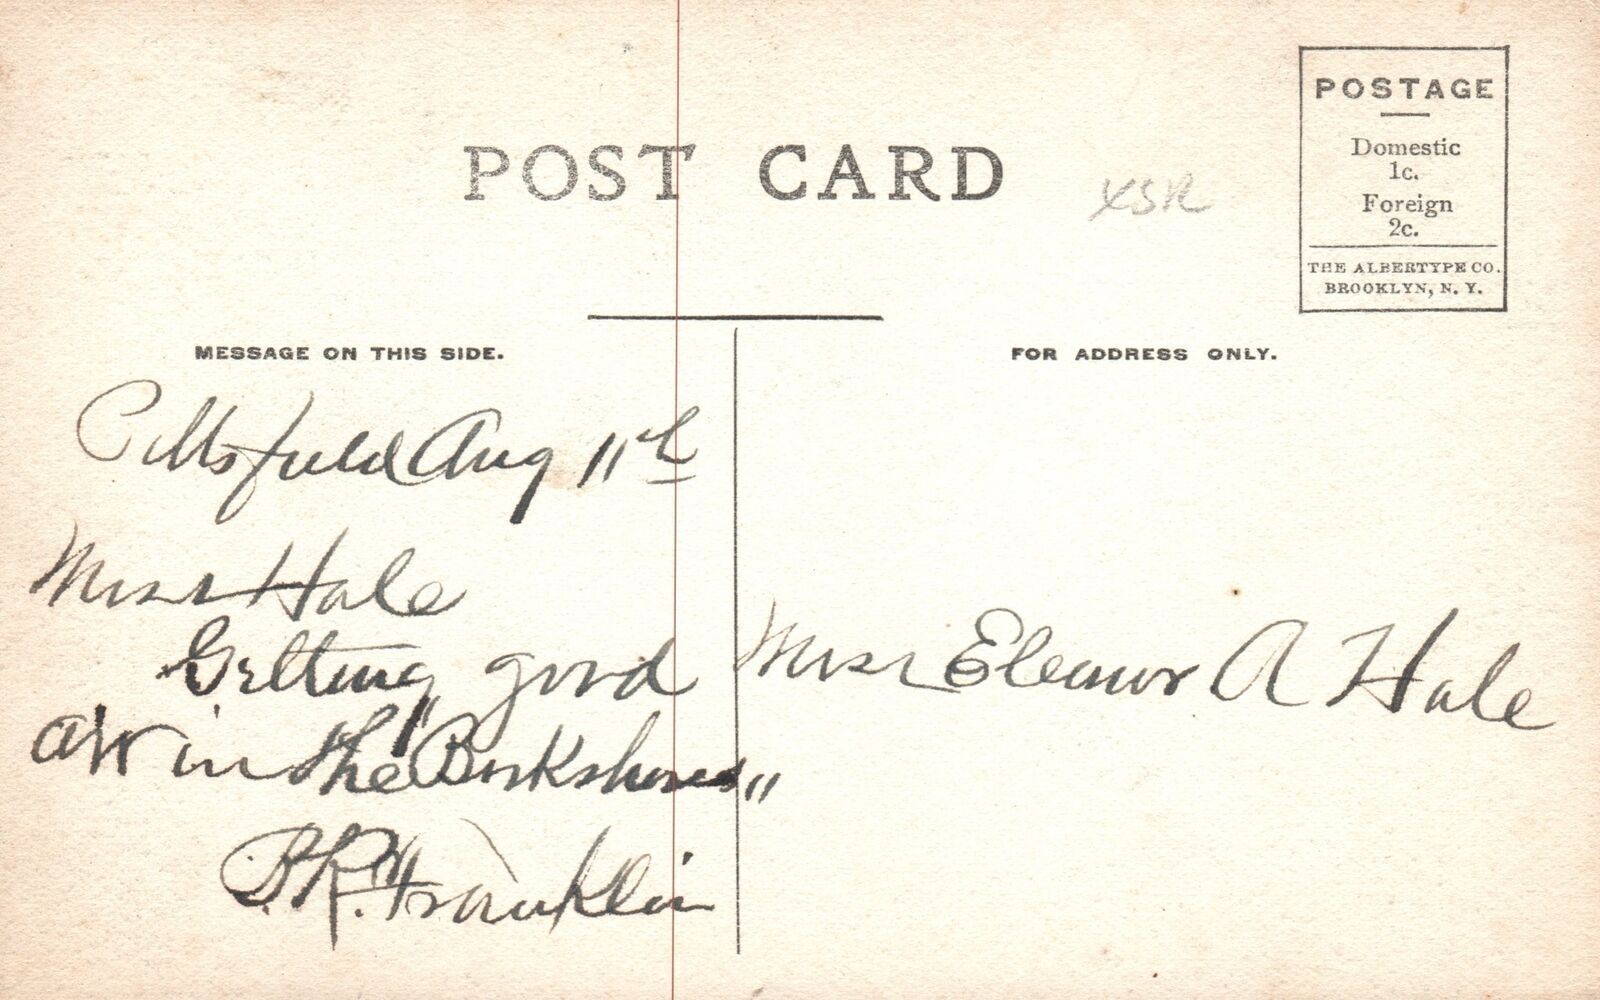 POST CARD
POSTAGE
Domestic
1c.
Foreign
2c.
THE ALBERTYPE CO.
BROOKLYN, N. Y.
MESSAGE ON THIS SIDE.
Pittsfield Aug 11th
Miss Hale
Getting good
air in the "Berkshires"
B.R. Franklin
FOR ADDRESS ONLY.
Miss Eleanor A Hale